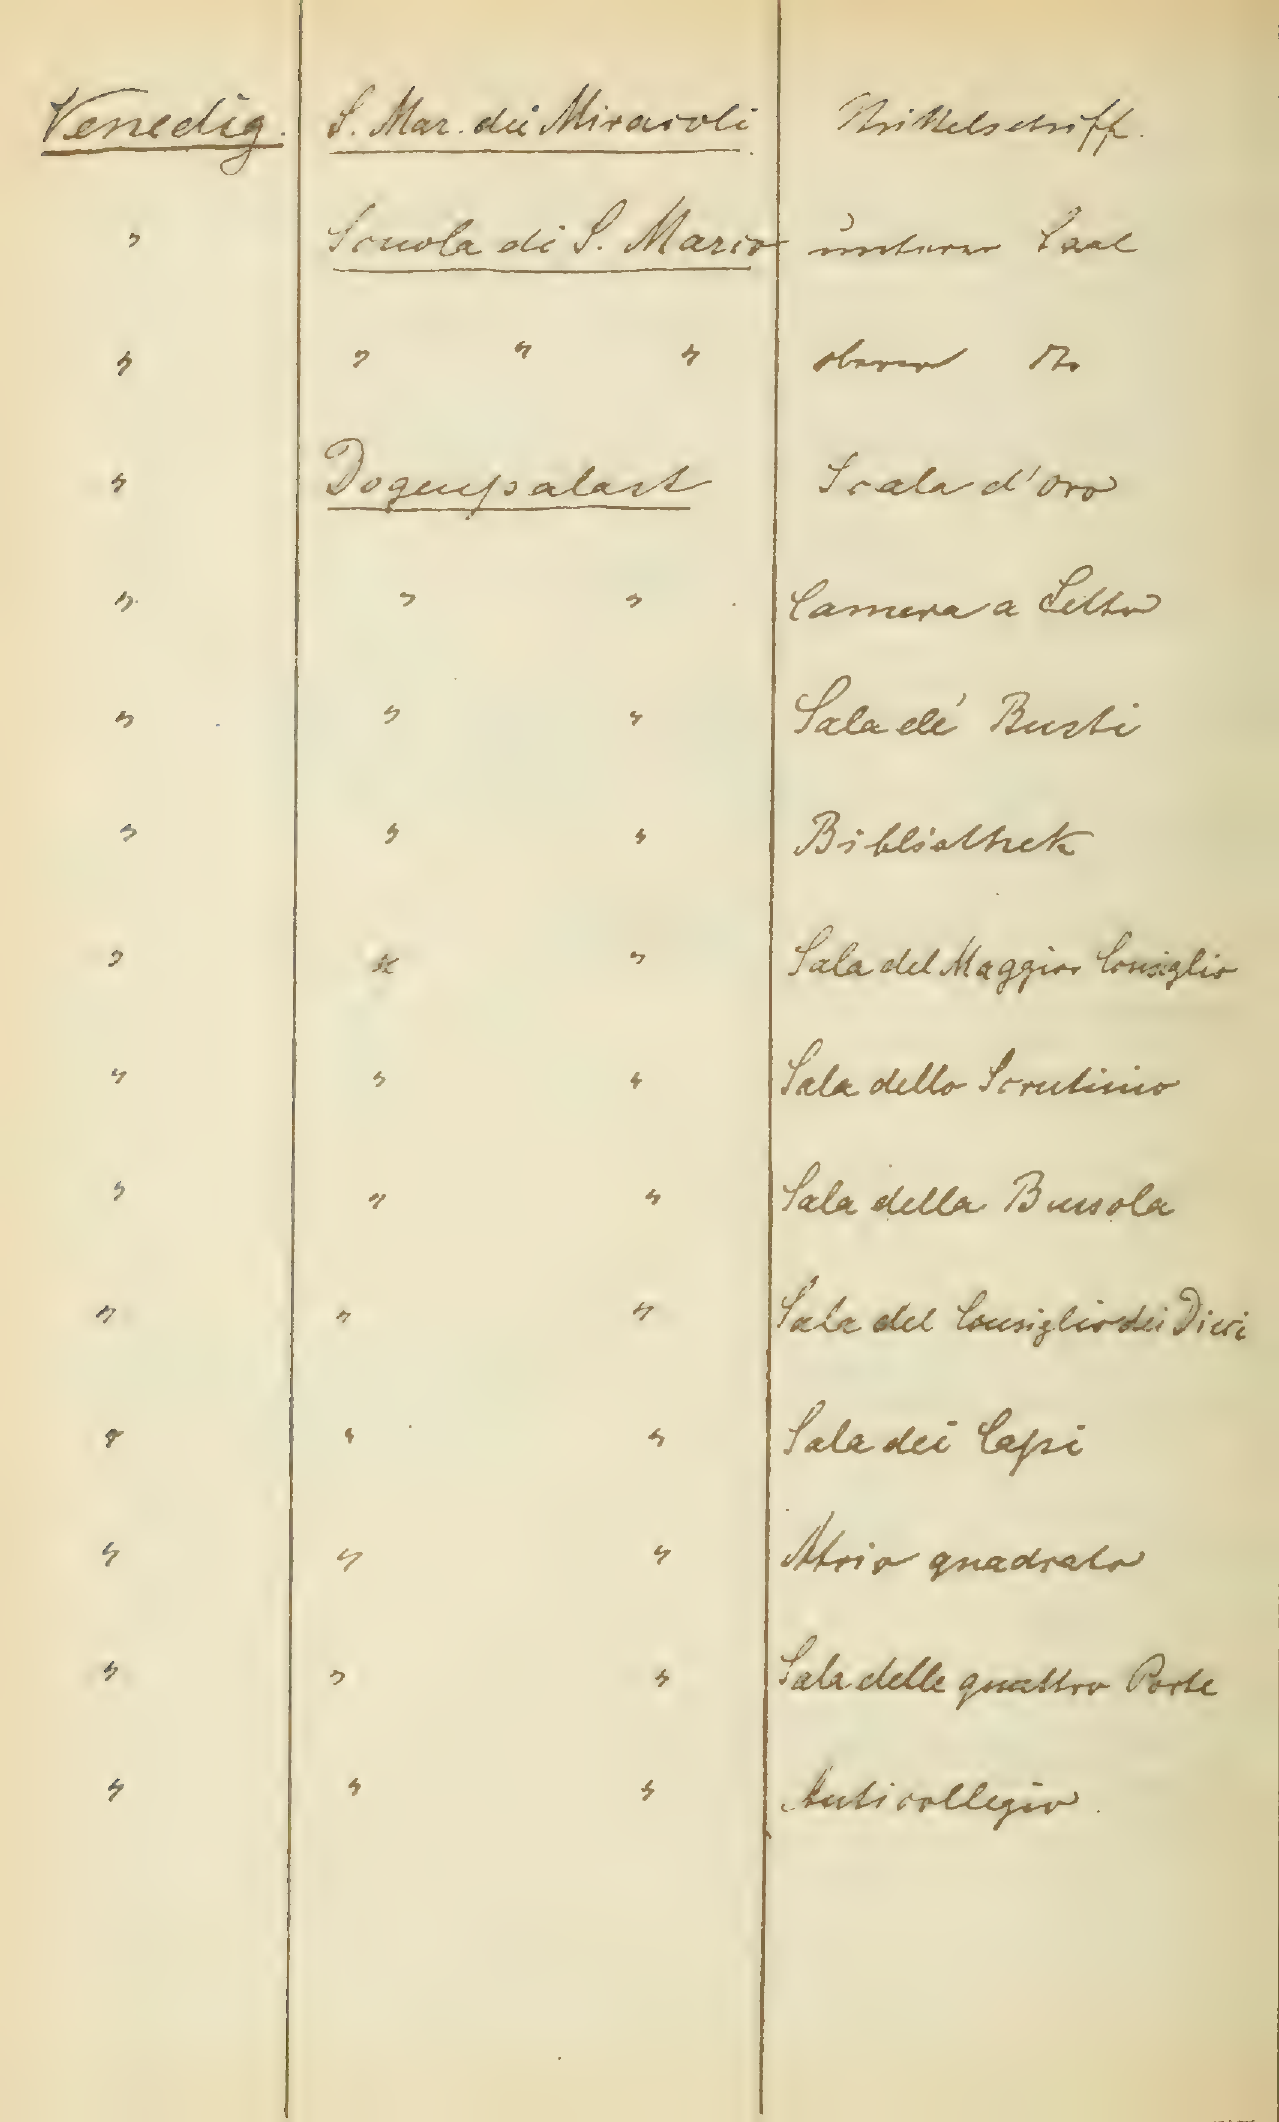 Venedig. S. Mar. dei Miracoli Mittelschiff.
" Scuola di S. Marco unterer Saal
" " " " oberer Do
" Dogenpalast Scala d'oro
" " " Camera a Letto
" " " Sala dé Busti
" " " Bibliothek
" " " Sala del Maggior Consiglio
" " " Sala dello Scrutinio
" " " Sala della Bussola
" " " Sala del Consiglio dei Dieci
" " " Sala dei Capi
" " " Atrio quadrato
" " " Sala delle quattro Porte
" " " Anticollegio.